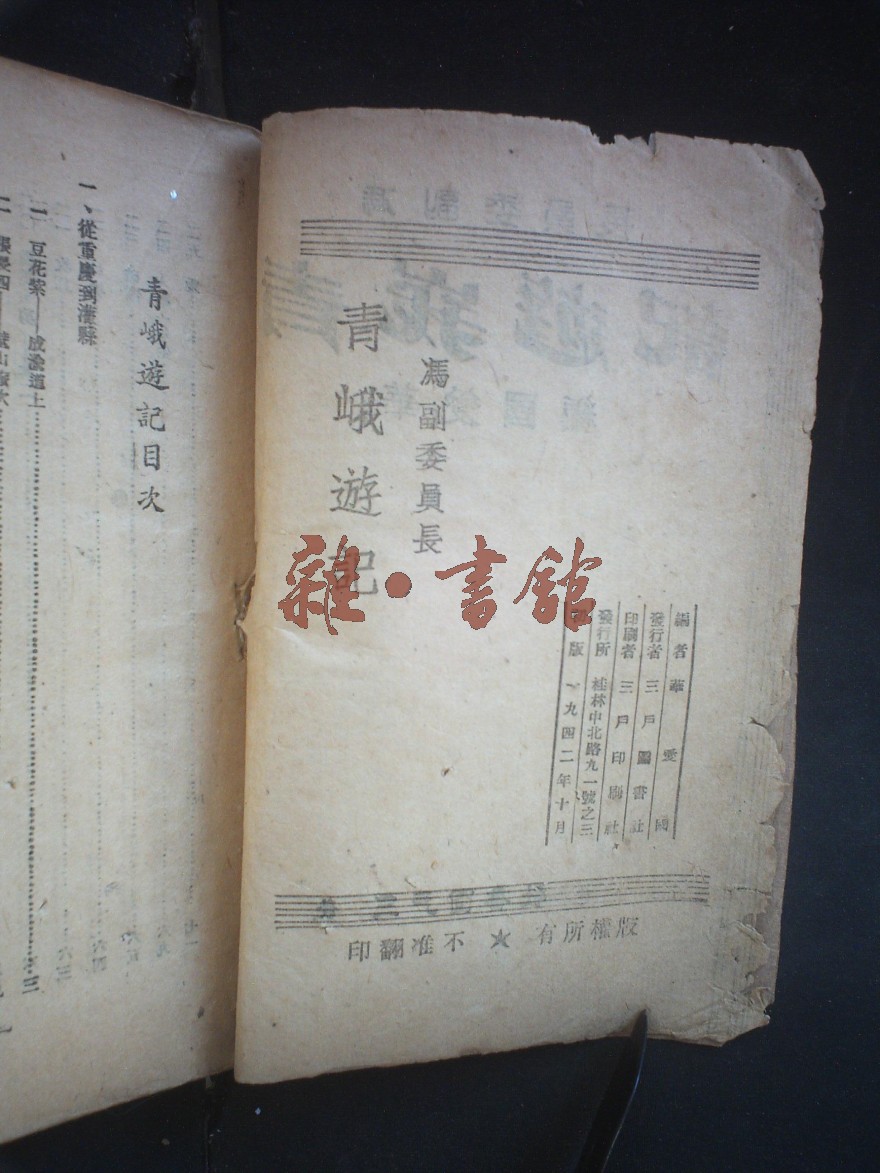 馮副委員長
青峨遊記
編者 華愛國
發行者 三戶圖書社
印刷者 三戶印刷社
發行所 桂林中北路九一號之三
版 一九四二年十月
版權所有★不准翻印
青峨遊記目次
一、從重慶到灌縣
一 豆花\u3000成渝道上
雜·書館